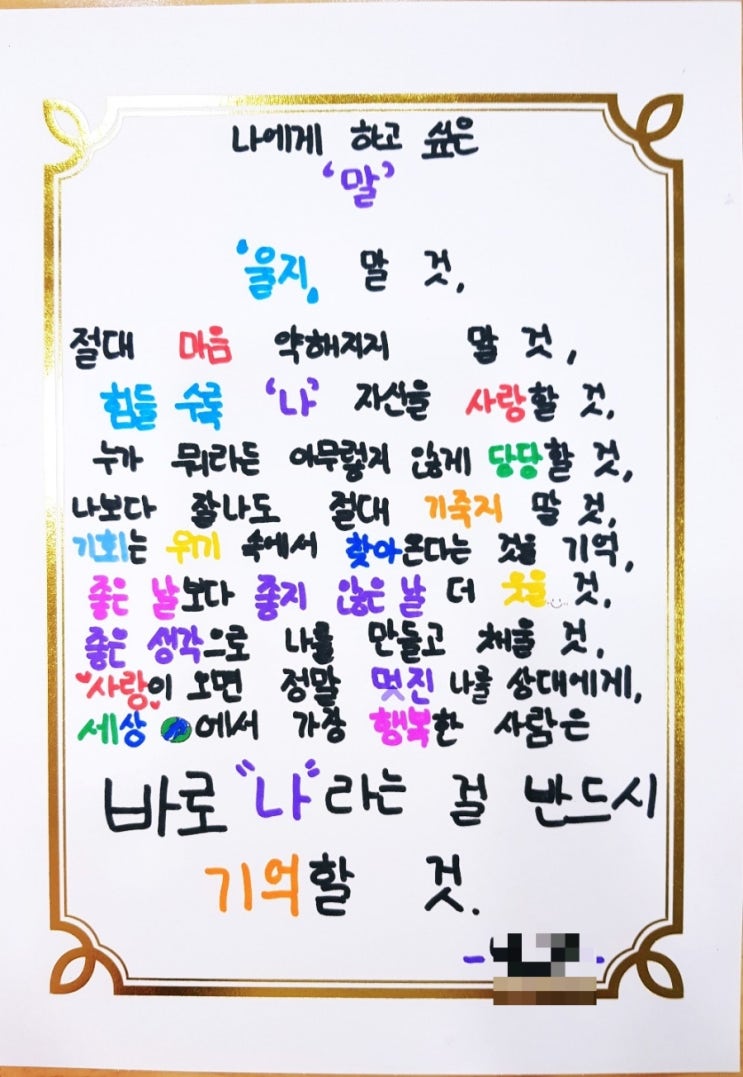 나에게 하고 싶은
‘말’
‘울지, 말 것,
절대 마음 약해지지 말 것,
힘들 수록 ‘나’ 자신을 사랑할 것,
누가 뭐라든 아무렇지 않게 당당할 것,
나보다 잘나도 절대 기죽지 말 것,
기회는 위기 속에서 찾아온다는 것을 기억,
좋은 날보다 좋지 않은 날 더 웃을 것,
좋은 생각으로 나를 만들고 채울 것,
사랑이 오면 정말 멋진 나를 상대에게,
세상에서 가장 행복한 사람은
바로 “나”라는 걸 반드시
기억할 것.